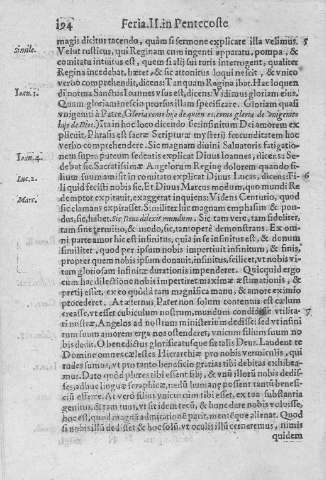 194 Feria.II.in Pentecoste
magis dicitur tacendo, quàm si sermone explicare illa velimus. 5
Simile. Velut rusticus, qui Reginam cum ingenti apparatu, pompa, &
comitatu intuitus est, quem si alij sui toris interrogant, qualiter
Regina incedebat, hæret, & sic attonitus loqui nescit, & vnico
verbo comprehendit, dicens: Tanquam Regina ibat. Hæc loquen
Ioan.1. di norma Sanctus Ioannes vsus est, dicens: Vidimus gloriam eius,
Quam gloriam nescio prorsus illam specificare. Gloriam quasi
vnigeniti à Patre,
hijo de Dios. Ita in hoc loco dicendo sic infinitum Dei amorem ex
plicuit. Phrasis est sacræ Scripturæ mysterij fœcunditatem hoc
verbo comprehendere. Sic magnam diuini Saluatoris fatigatio-
Ioan.4. nem supra puteum sedentis explicat Diuus Ioannes, dicens: Se
debat sic. Sacratissimæ Angelorum Reginæ dolorem quando fi-
Luc.2. lium suum amisit in comitatu explicat Diuus Lucas, dicens: Fi- 6
li quid fecisti nobis sic. Et Diuus Marcus modum, quo mundi Re
Marc. demptor expirauit, exaggerat inquiens: Videns Centurio, quod
sic clamans expirasset. Similiter hîc magnam emphasim & pon-
dus, sic, habet. Sic Deus dilexit mundum. Sic tam vere, tam fideliter,
tam sine termino, & modo, sic, tanto opere demonstrans. Ex om-
ni parte amor hic est infinitus, quia in se infinitus est, & donum
similiter, quod per ipsum nobis impertiuit infinitum, & finis,
propter quem nobis ipsum donauit, infinitus, scilicet, vt nobis vi-
tam gloriosam infinitæ durationis impenderet. Quicquid ergo
cum hac dilectione nobis impertiret maximæ æstimationis, &
pretij esset, ex eo quòd à tam magnifica manu, & amore eximio
procederet. At æternus Pater non solum contentus est cælum
creasse, vt esset cubiculum nostrum, mundum condidisse vtilita- 7
ti nostræ, Angelos ad nostram ministerium dedisse: sed vt infini
tum suum amorem erga nos ostenderet, vnicum filium suum no
bis dedit. O benedictus glorificatusque sis talis Deus. Laudent te
Domine omnes cælestes Hierarchiæ pro nobis vermiculis, qui
tales sumus, vt pro tanto beneficio gratias tibi debitas exhibea-
mus. Dato quòd plures tibi essent filij, & vnũ illorũ nobis dedis-
ses, adhuc linguæ seraphicæ, nedũ humanæ possent tantũ benefi-
ciũ efferre. At verò filius vnicus cum tibi esset, ex tua substantia
genitus, & tam tuus, vt sit idem tecũ, & hunc dare nobis voluisse,
hoc est, quod magnã admirationẽ parit, mentẽque alienat. Quod
si nobis illũ dedisset & hoc solũ vt oculis illũ cerneremus, nimis
quidem